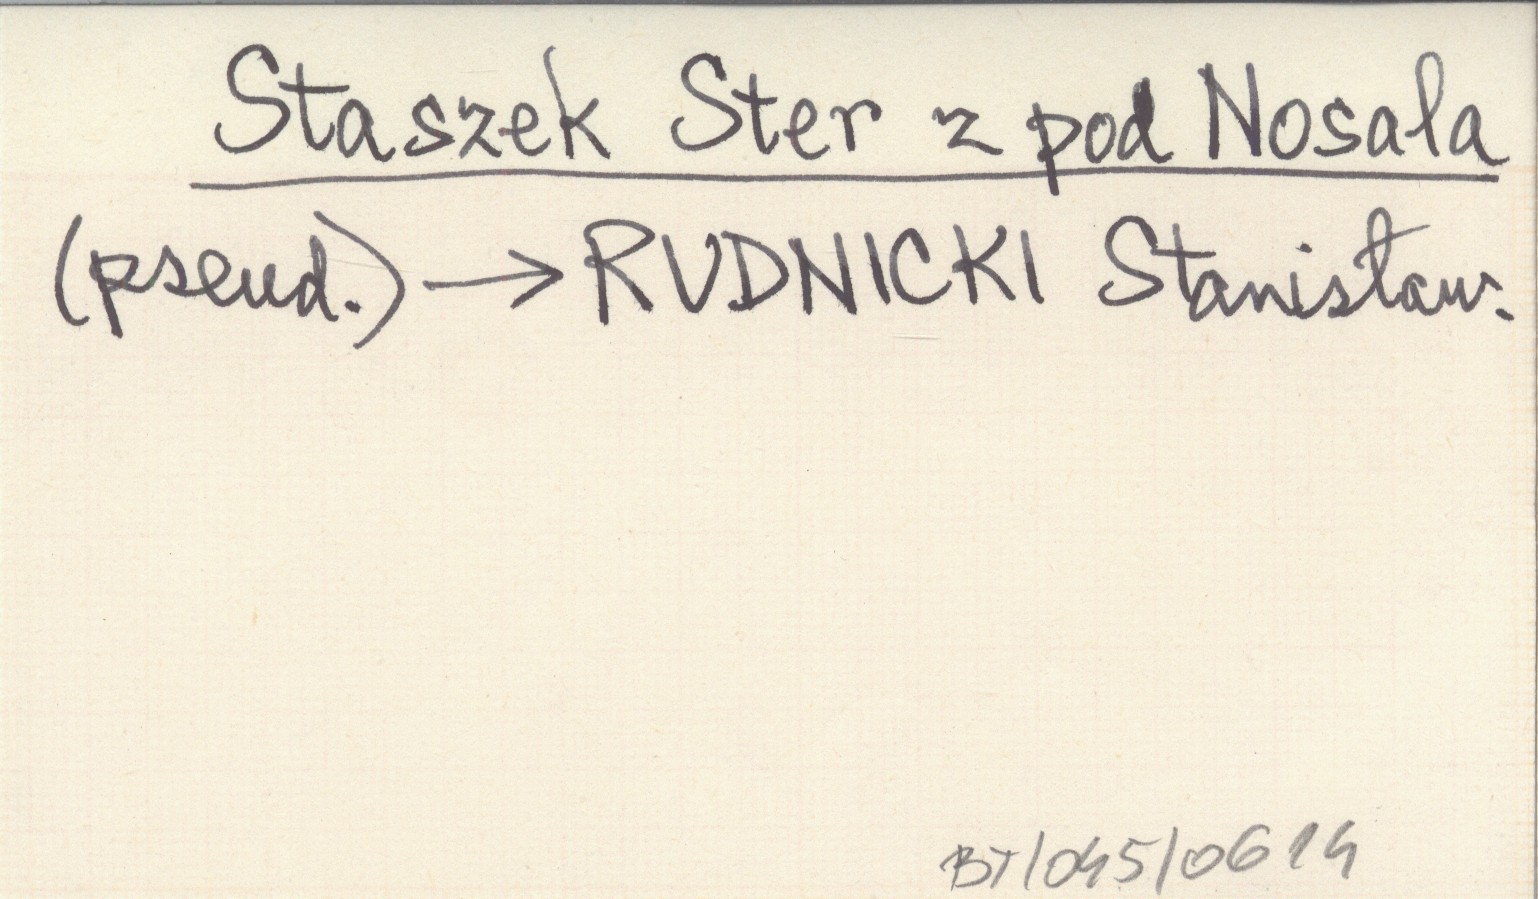 Staszek Ster z pod Nosala
(pseud.) → RUDNICKI Stanisław.
BT/045/0614